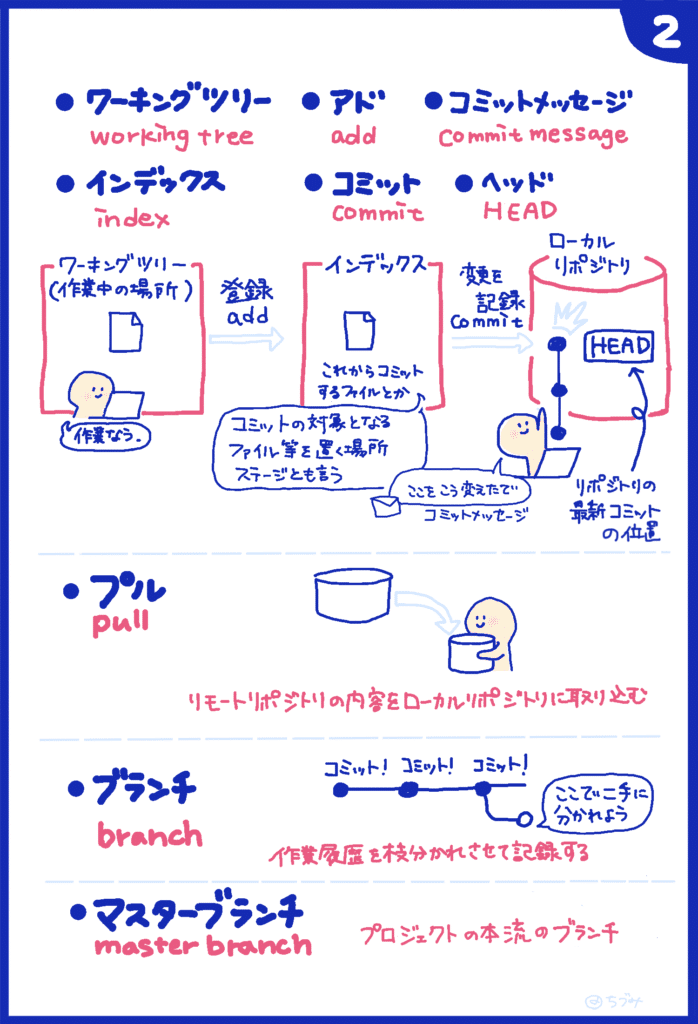 2
● ワーキングツリー
working tree
● アド
add
● コミットメッセージ
commit message
● インデックス
index
● コミット
commit
● ヘッド
HEAD
ワーキングツリー
(作業中の場所)
作業なう。
登録
add
インデックス
これからコミット
するファイルとか
コミットの対象となる
ファイル等を置く場所
ステージとも言う
変更を
記録
commit
ローカル
リポジトリ
HEAD
ここをこう変えたで
コミットメッセージ
リポジトリの
最新コミット
の位置
● プル
pull
リモートリポジトリの内容をローカルリポジトリに取り込む
● ブランチ
branch
コミット! コミット! コミット!
ここで二手に
分かれよう
作業履歴を枝分かれさせて記録する
● マスターブランチ
master branch
プロジェクトの本流のブランチ
@ちづみ